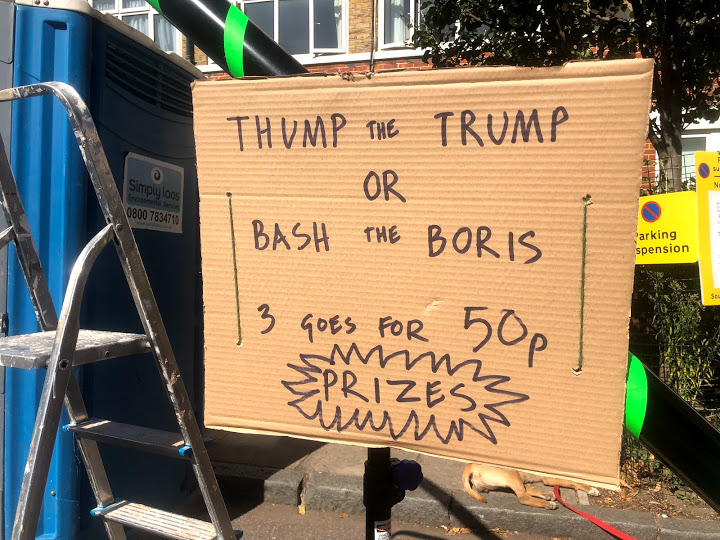 THUMP THE TRUMP
OR
BASH THE BORIS
3 GOES FOR 50p
PRIZES
Simply loos
Environmental Services
0800 7834710
Parking
spension